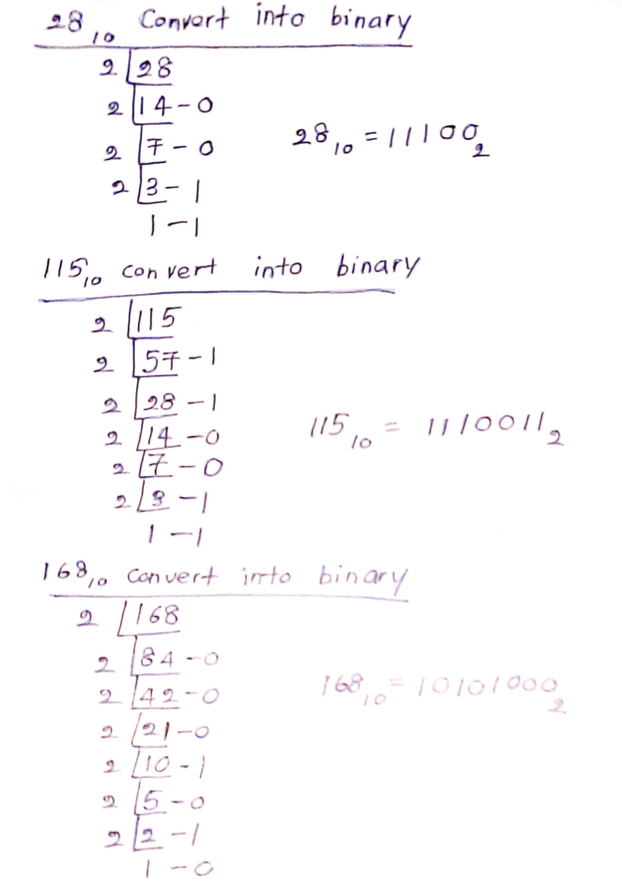 28₁₀ Convert into binary
2 | 28
2 | 14 - 0
2 | 7 - 0
2 | 3 - 1
1 - 1
28₁₀ = 11100₂
115₁₀ convert into binary
2 | 115
2 | 57 - 1
2 | 28 - 1
2 | 14 - 0
2 | 7 - 0
2 | 3 - 1
1 - 1
115₁₀ = 1110011₂
168₁₀ convert into binary
2 | 168
2 | 84 - 0
2 | 42 - 0
2 | 21 - 0
2 | 10 - 1
2 | 5 - 0
2 | 2 - 1
1 - 0
168₁₀ = 10101000₂